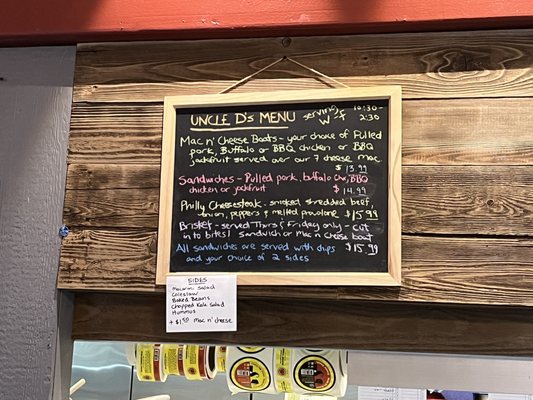 UNCLE D'S MENU
serving 10:30 -
W-F 2:30
Mac n' Cheese Boats - your choice of Pulled
pork, Buffalo or BBQ chicken or BBQ
jackfruit served over our 7 cheese mac
$13.99
Sandwiches - Pulled pork, buffalo Chx, BBQ
chicken or jackfruit $14.99
Philly Cheesesteak - smoked shredded beef,
onion, peppers & melted provolone $15.99
Brisket - served Thurs & Friday only - cut
in to bites! Sandwich or Mac n' cheese boat
All sandwiches are served with chips $15.99
and your choice of 2 sides
SIDES
Macaroni Salad
Coleslaw
Baked Beans
Chopped Kale Salad
Hummus
+ $1.50 Mac n' cheese